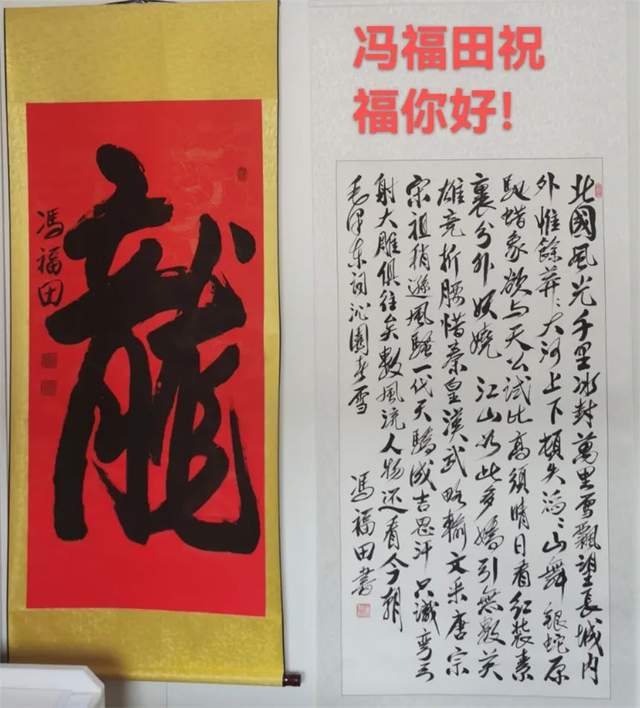 冯福田祝
福你好!
龍
馮福田
北國風光千里冰封萬里雪飄望長城内
外惟餘莽〻大河上下頓失滔〻山舞銀蛇原
馳蜡象欲与天公試比高須晴日看紅裝素
裹分外妖嬈江山如此多嬌引無數英
雄竞折腰惜秦皇漢武略輸文采唐宗
宋祖稍遜風騷一代天驕成吉思汗只識彎弓
射大雕俱往矣數風流人物还看今朝
毛泽东詞沁園春雪
馮福田書